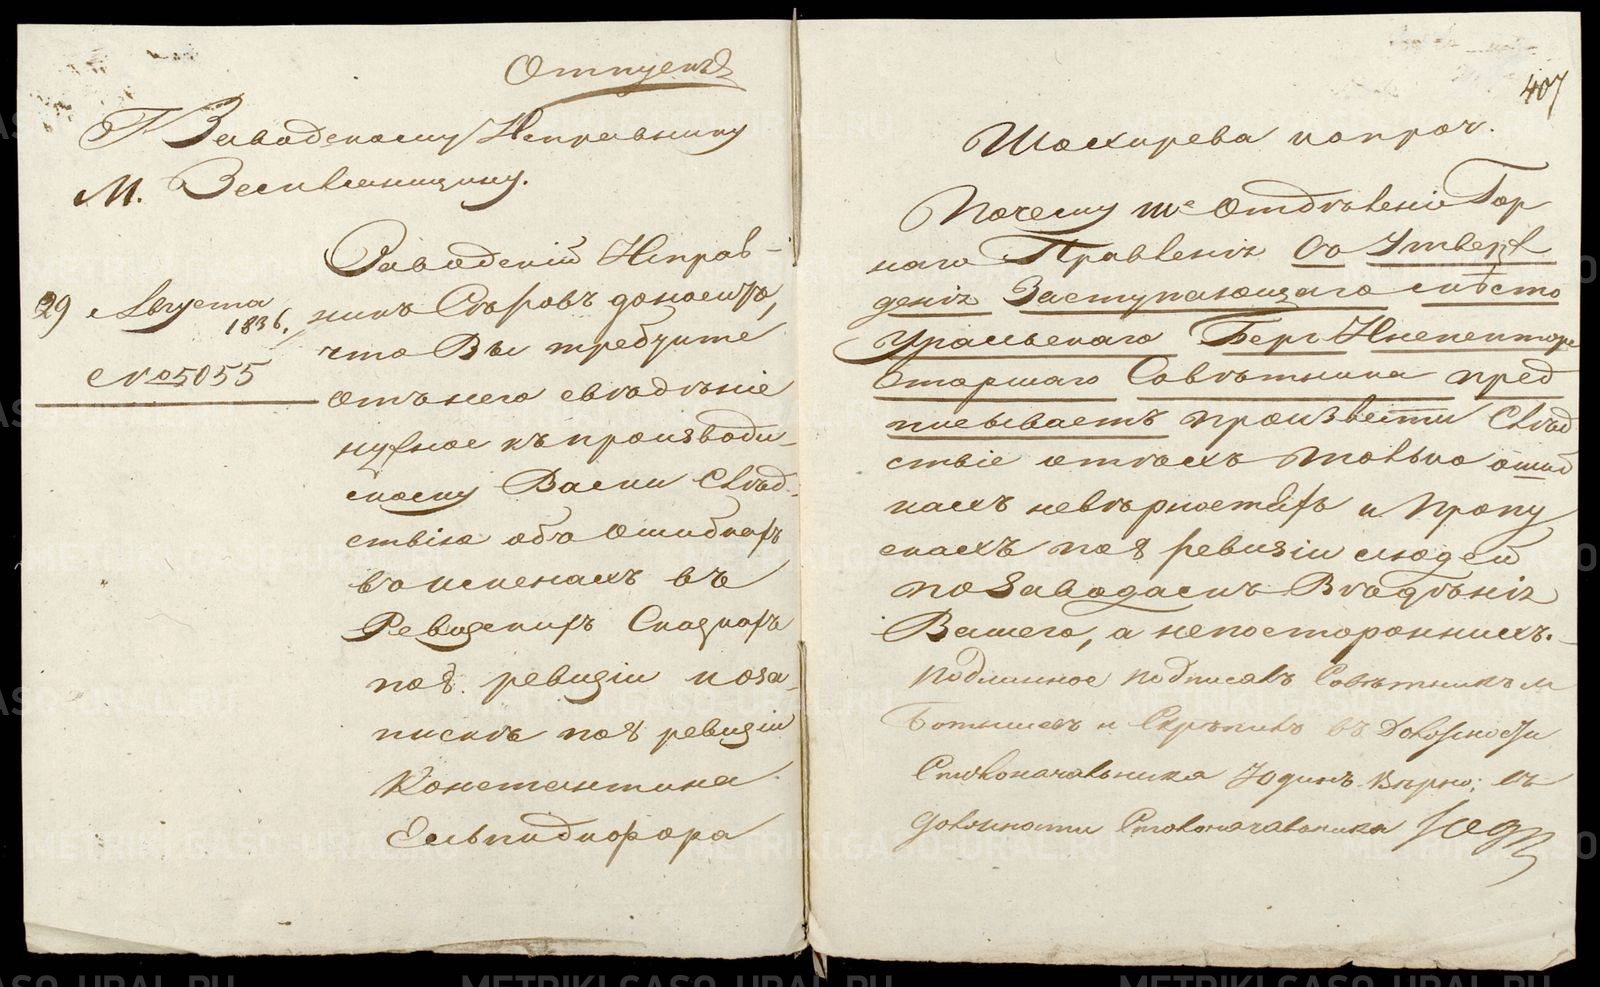 Отпускъ
Г Заводскому Исправнику
М.
Заводскій Исправ-
29 Августа
1836.
№ 5055
никъ Сѣровъ доноситъ,
что Вы требуете
отънего свѣдѣніе
нужное къпроизводи-
мому Вами Слѣд-
ствію объ ошибкахъ
въ
Ревизскихъ Сказкахъ
по 8. ревизіи поза-
пискѣ по 8 ревизіи
Константина
Ельпидифора
407
Шахирева ипроч.
Почему IIIе Отдѣленіе Гор
наго Правленія Со Утверж
денія Заступающаго мѣсто
Уральскаго Берг Инспектора
Старшаго Совѣтника пред
писываетъ произвести Слѣд
ствіе отѣхъ только ошиб
кахъ невѣрностяхъ и Пропу
скахъ по 8 ревизіи людей
по Заводамъ Вѣдѣнія
Вашего, а непостороннихъ.
Подлинное подписалъ Совѣтникъ
и Скрѣпилъ въ Должности
Столоначальника Юдинъ Вѣрно: въ
должности Столоначальника
METRIKI.GASO-URAL.RU